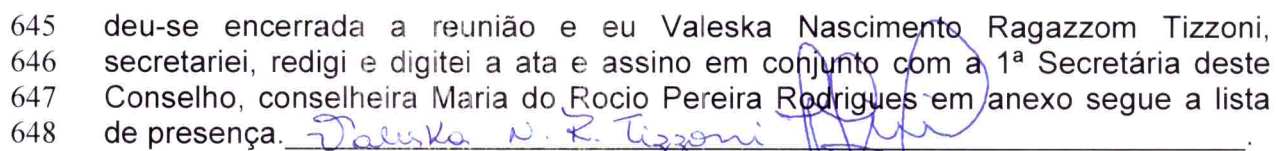 645 deu-se encerrada a reunião e eu Valeska Nascimento Ragazzom Tizzoni,
646 secretariei, redigi e digitei a ata e assino em conjunto com a 1ª Secretária deste
647 Conselho, conselheira Maria do Rocio Pereira Rodrigues em anexo segue a lista
648 de presença. Valeska N. R. Tizzoni .